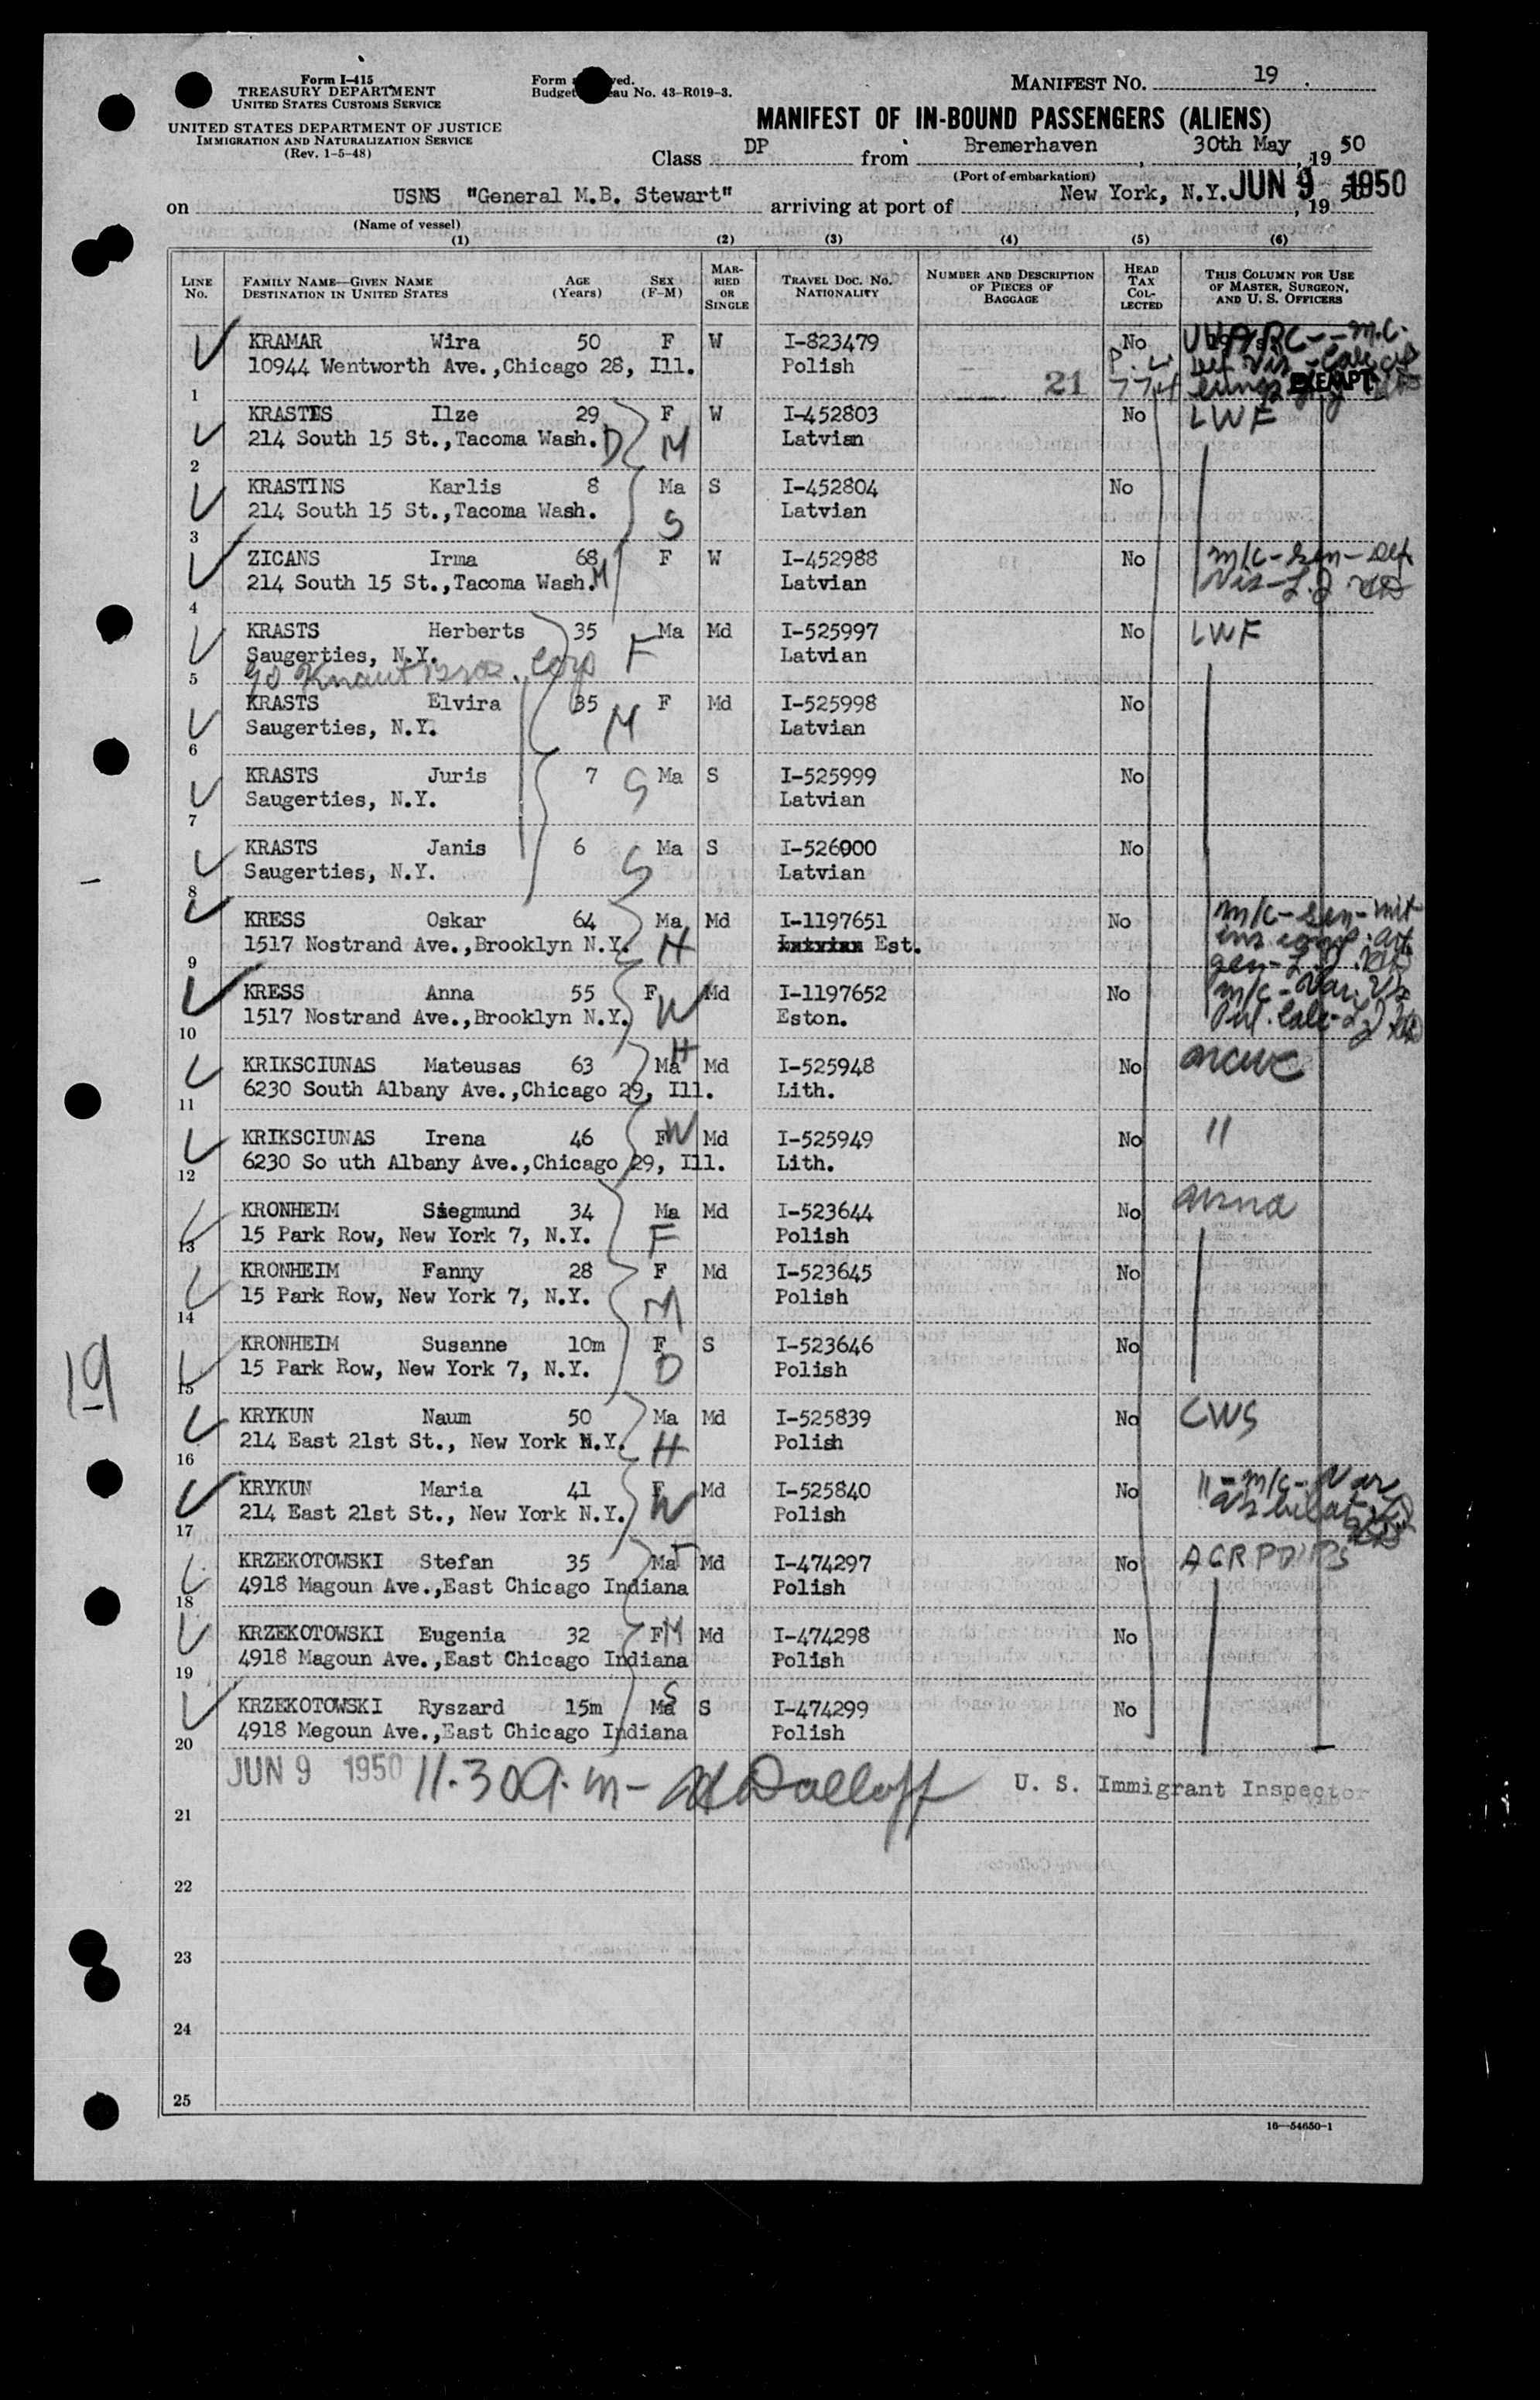 Form I-415
TREASURY DEPARTMENT
UNITED STATES CUSTOMS SERVICE
UNITED STATES DEPARTMENT OF JUSTICE
IMMIGRATION AND NATURALIZATION SERVICE
(Rev. 1-5-48)
Form
Budget No. 43-R019-3.
MANIFEST NO. 19
MANIFEST OF IN-BOUND PASSENGERS (ALIENS)
Class DP from Bremerhaven, 30th May, 19 50
(Port of embarkation)
on USNS "General M.B. Stewart" arriving at port of New York, N.Y. JUN 9 1950, 19 50
(Name of vessel)
(1) (2) (3) (4) (5) (6)
LINE No. FAMILY NAME—GIVEN NAME DESTINATION IN UNITED STATES AGE (Years) SEX (F-M) MARRIED OR SINGLE TRAVEL DOC. NO. NATIONALITY NUMBER AND DESCRIPTION OF PIECES OF BAGGAGE HEAD TAX COLLECTED THIS COLUMN FOR USE OF MASTER, SURGEON, AND U. S. OFFICERS
KRAMAR Wira 50 F W I-823479 No
10944 Wentworth Ave.,Chicago 28, Ill. Polish 21 P.L. 774 EXEMPT
1
KRASTES Ilze 29 F W I-452803 No LWF
214 South 15 St.,Tacoma Wash. D M Latvian
2
KRASTINS Karlis 8 Ma S I-452804 No
214 South 15 St.,Tacoma Wash. S Latvian
3
ZICANS Irma 68 F W I-452988 No m/c-Sen-Def
214 South 15 St.,Tacoma Wash. M Latvian Vis-
4
KRASTS Herberts 35 Ma Md I-525997 No LWF
Saugerties, N.Y. F Latvian
5 c/o Knaust Bros. Corp
KRASTS Elvira 35 F Md I-525998 No
Saugerties, N.Y. M Latvian
6
KRASTS Juris 7 Ma S I-525999 No
Saugerties, N.Y. S Latvian
7
KRASTS Janis 6 Ma S I-526000 No
Saugerties, N.Y. S Latvian
8
KRESS Oskar 64 Ma Md I-1197651 No m/c-Sen-mit
1517 Nostrand Ave.,Brooklyn N.Y. H Latvian Est.
9
KRESS Anna 55 F Md I-1197652 No m/c-Var.
1517 Nostrand Ave.,Brooklyn N.Y. W Eston.
10
KRIKSCIUNAS Mateusas 63 Ma H Md I-525948 No NCWC
6230 South Albany Ave.,Chicago 29, Ill. Lith.
11
KRIKSCIUNAS Irena 46 F W Md I-525949 No "
6230 So uth Albany Ave.,Chicago 29, Ill. Lith.
12
KRONHEIM Siegmund 34 Ma Md I-523644 No USNA
15 Park Row, New York 7, N.Y. F Polish
13
KRONHEIM Fanny 28 F Md I-523645 No
15 Park Row, New York 7, N.Y. M Polish
14
KRONHEIM Susanne 10m F S I-523646 No
15 Park Row, New York 7, N.Y. D Polish
15
KRYKUN Naum 50 Ma Md I-525839 No CWS
214 East 21st St., New York N.Y. H Polish
16
KRYKUN Maria 41 F Md I-525840 No " - m/c- Var
214 East 21st St., New York N.Y. W Polish
17
KRZEKOTOWSKI Stefan 35 Ma F Md I-474297 No
4918 Magoun Ave.,East Chicago Indiana Polish
18
KRZEKOTOWSKI Eugenia 32 F M Md I-474298 No
4918 Magoun Ave.,East Chicago Indiana Polish
19
KRZEKOTOWSKI Ryszard 15m Ma S S I-474299 No
4918 Megoun Ave.,East Chicago Indiana Polish
20
JUN 9 1950 11.30 a.m- U. S. Immigrant Inspector
21
22
23
24
25
16—54650-1
19